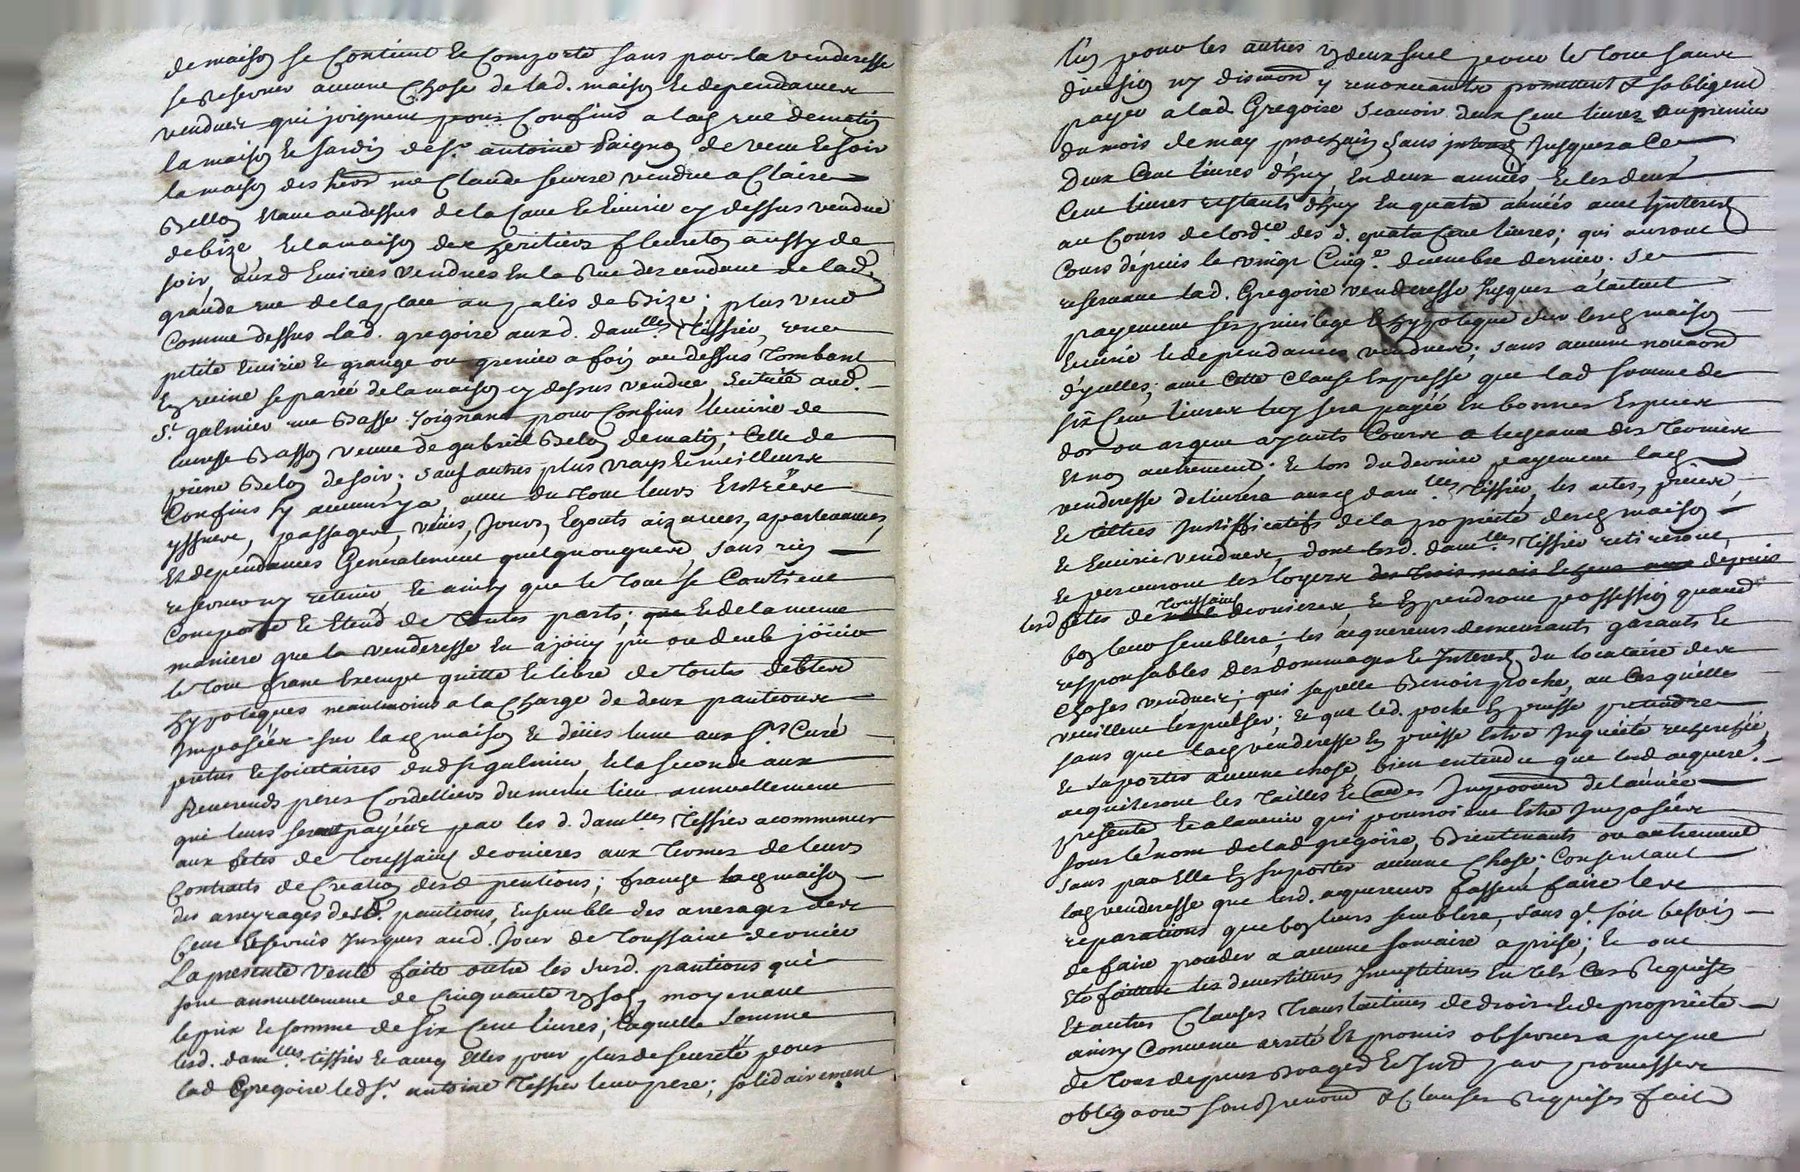 de maison se contient et comporte sans par la venderesse
se reserver aucune chose de lad. maison et dependances
vendues qui joignent pour confins a la rue de matin
la maison et jardin de sr. antoine Paignon de vent et soir
la maison des me Claude vendue a Claire
Bellon veuve au dessus de la Cave et Ecurie cy dessus vendue
de bize, et la maison des heritiers fleureton aussy de
soir, auxd Ecuries vendues En la Rue descendant de lad.
grande rue de la place au palis de Bize; plus vend
Comme dessus lad. gregoire auxd. damlles. Tissier, une
petite Ecurie et grange ou grenier a foin au dessus Tombant
En ruine separée de la maison cy dessus vendue scituée aud.
St. galmier rue Basse joignant pour Confins l'ecurie de
Basson veuve de gabriel Belon de matin; Celle de
pierre Belon de soir; sauf autres plus vrays et meilleurs
Confins sy aucuns y a avec du tout leurs Entrées
yssues, passages, vües, jours, Egouts aizances, apartenances,
Et dépendances Generalement quelquonques sans rien
reserver ny retenir Et ainsy que le tout se Contient
Comporte Et Etend de toutes parts; et de la meme
maniere que la venderesse En a joüy pû ou deub joüir
le tout franc Exempt quitte et libre de toutes debtes
hypoteques neantmoins a la Charge de deux pantions
Imposées sur lad maison et deües lune aux srs Curé
pretres et sociétaires dud st galmier et la seconde aux
Reverends peres Cordelliers du meme lieu annuellement
qui leurs seront payées par les d. damlles Tissier a commencer
aux fetes de Toussaint dernieres aux Termes de leurs
Contrats de Creation desd pentions; franche lad maison
des arreyrages desd. pantions, Ensemble des arrerages des
Cens et servis jusques aud. jour de Toussaint dernier
La presente vente faite outre les susd. pantions qui
sont annuellement de Cinquante sols, moyenant
le prix et somme de six Cent livres; laquelle somme
lesd. damlles. tissier et avec Elles pour plus de sureté pour
lad Gregoire led sr. antoine Tissier leur pere; solidairement
lun pour les autres un deux seul pour le tout sans
division ny discution y renonçants promettent et sobligent
payer a lad Gregoire scavoir deux Cent livres au premier
du mois de may prochain sans jusques a Ce
Deux Cent livres d'huy En deux années, et les deux
Cent livres restants d'huy En quatre années avec Interest
au Cours de lordce. des d. quatre Cent livres; qui auront
Cours dépuis le vingt Cinqe. decembre dernier. se
reservant lad. Gregoire venderesse jusques a lactuel
payement ses privilege et hypoteque sur lesd maison
Ecurie et dependances vendues; sans aucune novaon
d'ycelles; avec Cette Clause Expresse que lad somme de
six Cent livres luy sera payée En bonnes Especes
dor ou argent ayants Cours a lecheance des termes
Et non autrement; et lors du dernier payement lad
venderesse delivrera auxd damlles Tissier, les actes, pieces
et tiltres Justifficatifs de la proprieté desd maison
et Ecurie vendues, dont lesd. damlles Tissier retireront
et perceuront les loyers depuis
lesd fetes de Toussaint dernieres et En prendront possession quand
bon leur semblera; les acquereurs demeurants garants et
responsables des dommages et Interests du locataire des
Choses vendues; qui sapelle Benoit poche, au Cas quelles
veuillent lexpulser; et que led. poche En puisse pretendre
sans que lad venderesse En puisse Estre Inquietée recherchée
et suporter aucune chose, bien entendu que lesd acquers.
acquiteront les Tailles et Cordes Imposées de lannée
presente et a lavenir qui pourroient Estre Imposées
sous le nom de lad gregoire, Bientenants ou autrement
sans par Elle En suporter aucune Chose; Consentant
lad venderesse que lesd. acquereurs fassent faire les
reparations que bon leurs semblera, sans qe. soit besoin
de faire proceder a aucune somaire aprise; Et ont
Eté faittes les devestitures Investitures En tels Cas Requises
Et autres Clauses Translatives de droit et de proprieté
ainsy Convenu arreté Et promis observer a peyne
de tous depens domages Et Intd par promesses
obligaons renond & Clauses Requises fait